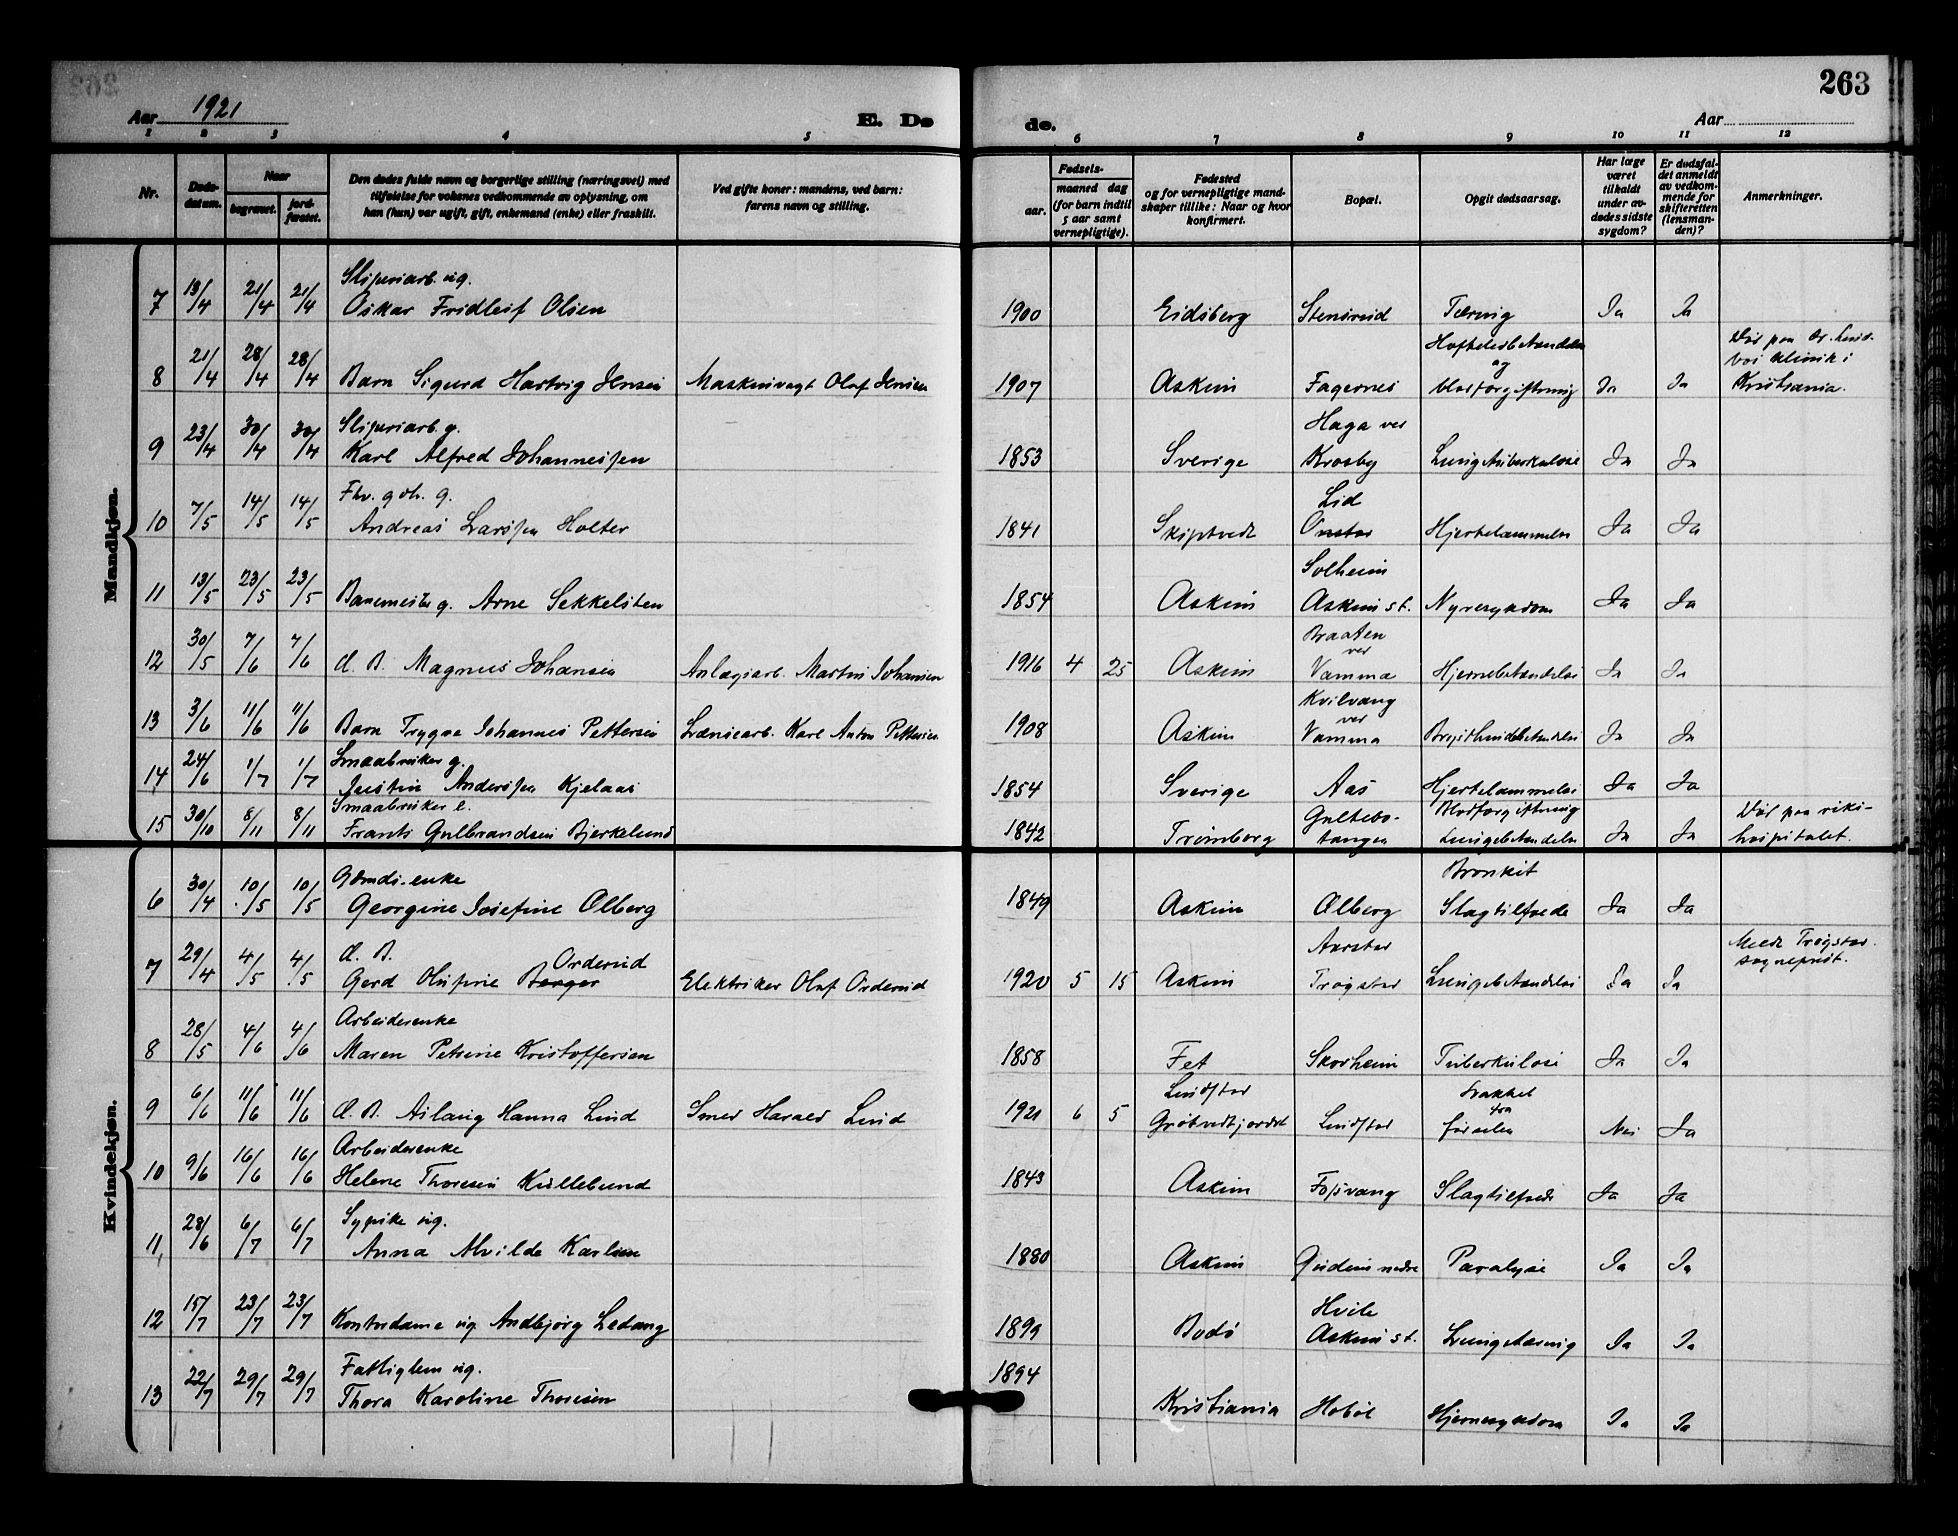 263
Aar 1921
E. Dø
de.
Aar
1 2 3 4 5
6 7 8 9 10 11 12
Nr.
Døds-
datum.
Naar
begravet.
jord-
fæstet.
Den dødes fulde navn og borgerlige stilling (næringsvei) med
tilføielse for voksnes vedkommende av oplysning, om
han (hun) var ugift, gift, enkemand (enke) eller fraskilt.
Ved gifte koner: mandens, ved barn:
farens navn og stilling.
aar.
Fødsels-
maaned dag
(for barn indtil
5 aar samt
vernepligtige).
Fødested
og for vernepligtige mand-
skaper tillike: Naar og hvor
konfirmert.
Bopæl.
Opgit dødsaarsag.
Har læge
været
tilkaldt
under av-
dødes sidste
sygdom?
Er dødsfal-
det anmeldt
av vedkom-
mende for
skifteretten
(lensman-
den)?
Anmerkninger.
Mandkjøn.
Sliperiarb. ug.
7 13/4 21/4 21/4 Oskar Fridleif Olsen 1900 Eidsberg Stensrud Tæring Ja Ja
Hofteledbetændelse
og
Død paa Dr.
klinik i
8 21/4 28/4 28/4 Barn Sigurd Hartvig Jensen Maskinvagt Olaf Jensen 1907 Askim Fagernes blodforgiftning Ja Ja Kristiania.
Sliperiarb. g. Haga ver
9 23/4 30/4 30/4 Karl Alfred Johannessen 1853 Sverige Krosby Lungetuberkulose Ja Ja
Fhv. gdb. g. Lid
10 7/5 14/5 14/5 Andreas Larssen Holter 1841 Skiptvedt Onstad Hjertelammelse Ja Ja
Solheim
11 13/5 23/5 23/5 Banemester g. Arne Sekkelsten 1854 Askim Askim st. Nyresygdom Ja Ja
Braaten
ver
12 30/5 7/6 7/6 d. B. Magnus Johansen Anlægsarb. Martin Johansen 1916 4 25 Askim Vamma Hjernebetændelse Ja Ja
Kvilvang
ver
13 3/6 11/6 11/6 Barn Trygve Johannes Pettersen Lænsearb. Karl Anton Pettersen 1908 Askim Vamma Brysthindebetændelse Ja Ja
Smaabruker g.
14 24/6 1/7 1/7 Justin Anderssen Kjelaas 1854 Sverige Aas Hjertelammelse Ja Ja
Smaabruker e. Gultebo- Blodforgiftning Død paa riks-
15 30/10 8/11 8/11 Frants Gulbrandsen Bjerkelund 1842 Trømborg tangen Lungebetændelse Ja Ja hospitalet.
Kvindekjøn.
Gdmds.enke Bronkit
6 30/4 10/5 10/5 Georgine Josefine Ølberg 1849 Askim Ølberg Slagtilfælde Ja Ja
d. B. Orderud Aarstad Meldt Trøgstad
sogneprest.
7 29/4 4/5 4/5 Gerd Olufine Berger Elektriker Olaf Orderud 1920 5 15 Askim Trøgstad Lungebetændelse Ja Ja
Arbeiderenke
8 28/5 4/6 4/6 Maren Petrine Kristoffersen 1858 Fet Skovheim Tuberkulose Ja Ja
Lindstad Svakhet
fra
9 6/6 11/6 11/6 d. B. Aslaug Hanna Lund Smed Harald Lund 1921 6 5 Lindstad fødselen Nei Ja
Arbeiderenke
10 9/6 16/6 16/6 Helene Thoresen Kullebund 1843 Askim Fossvang Slagtilfælde Ja Ja
Sypike ug.
11, 28/6 6/7 6/7 Anna Alvilde Karlsen 1880 Askim Gudim nedre Paralyse Ja Ja
Hvile
12 15/7 23/7 23/7 Kontordame ug Andbjørg Ledang 1899 Bodø Askim st. Lungetæring Ja Ja
Fattiglem ug.
13 22/7 29/7 29/7 Thora Karoline Thoresen 1894 Kristiania Hobøl Hjernesykdom Ja Ja